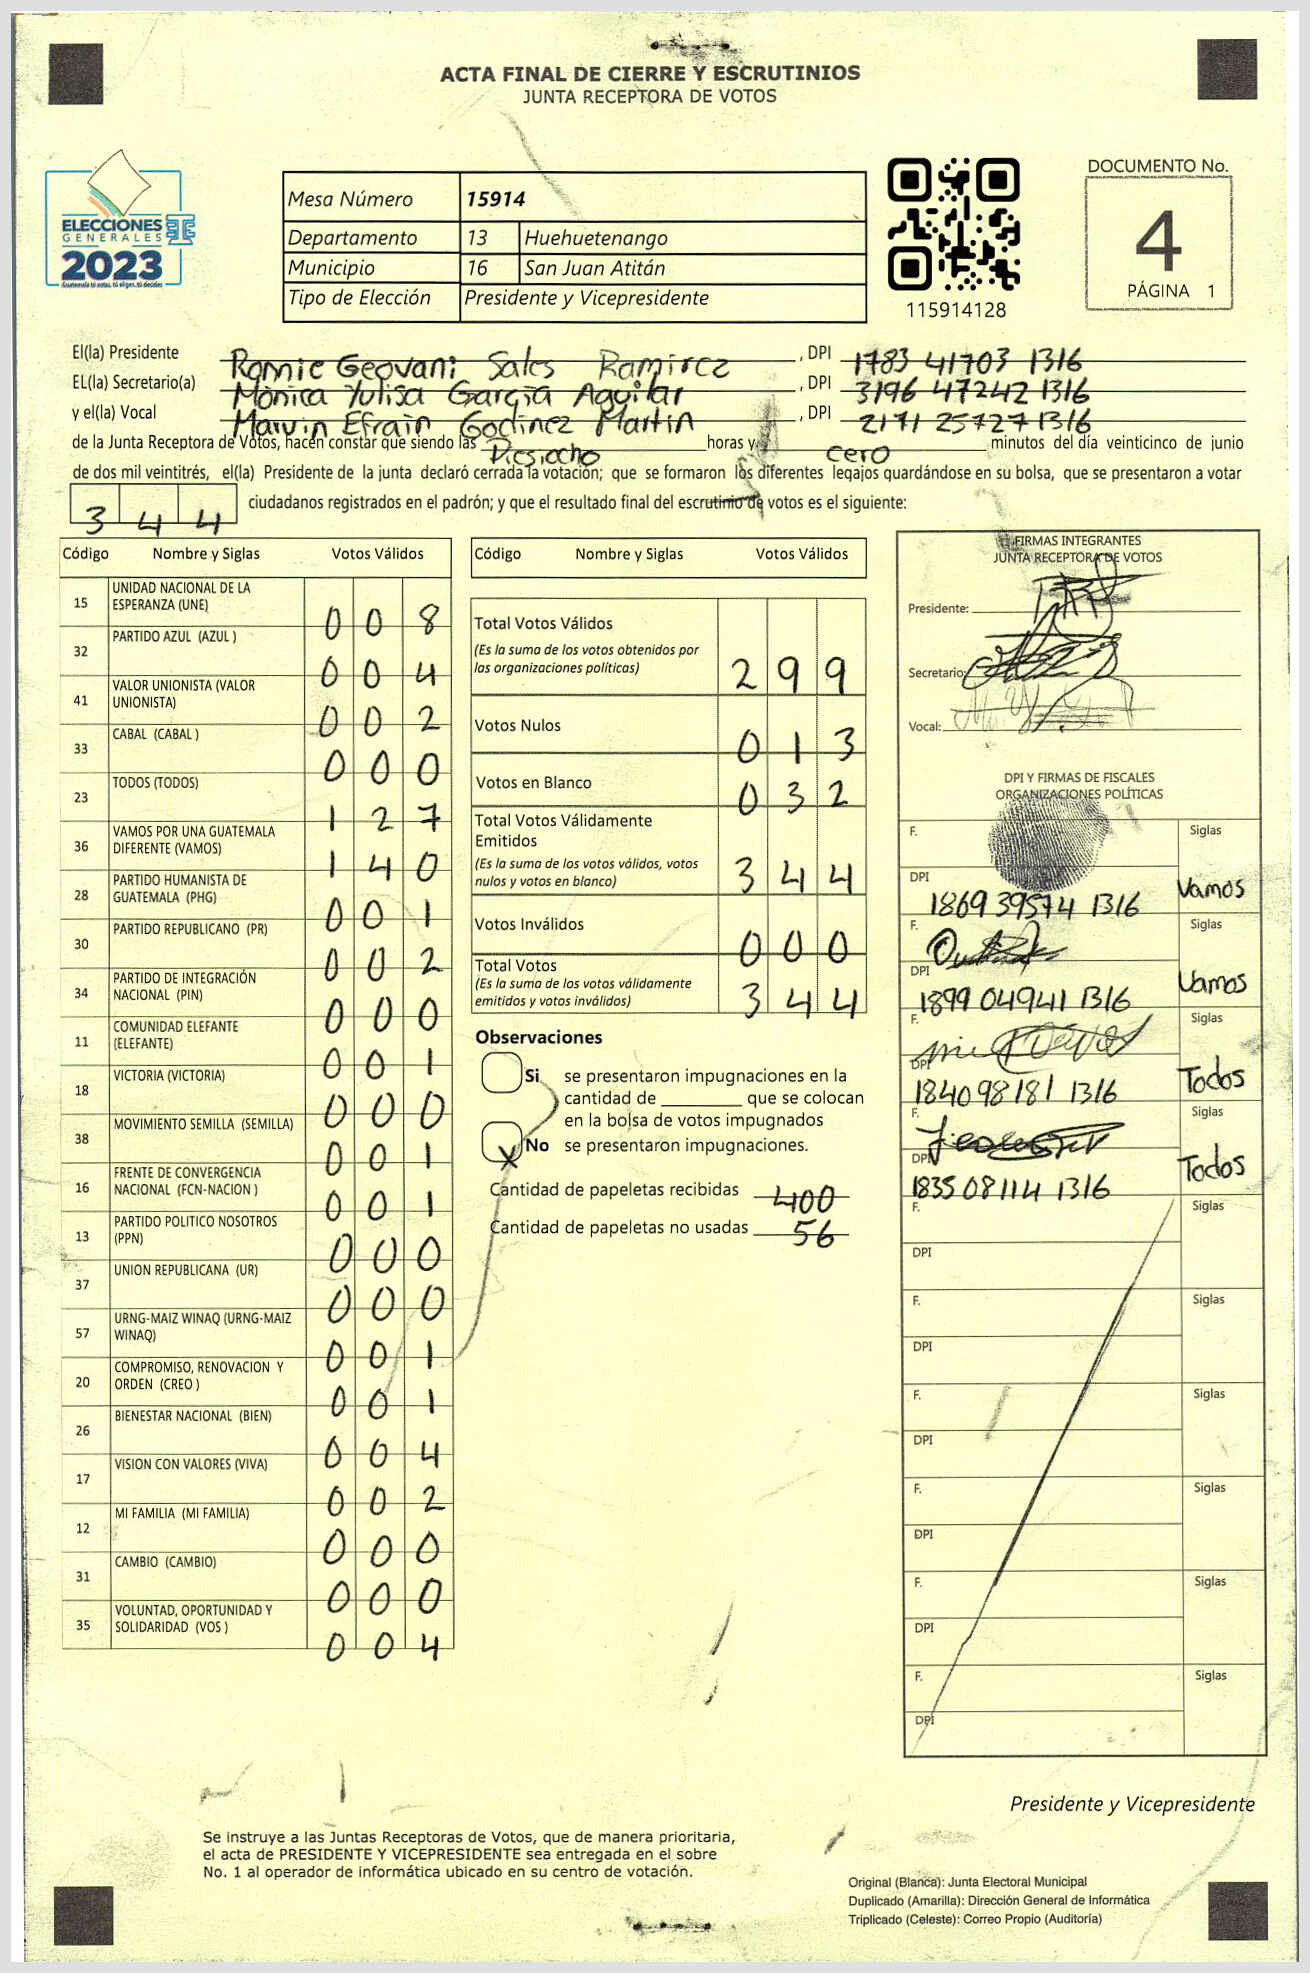 ACTA FINAL DE CIERRE Y ESCRUTINIOS
JUNTA RECEPTORA DE VOTOS
ELECCIONES
GENERALES
2023
Guatemala tú votas, tú eliges, tú decides
Mesa Número 15914
Departamento 13 Huehuetenango
Municipio 16 San Juan Atitán
Tipo de Elección Presidente y Vicepresidente
115914128
DOCUMENTO No.
4
PÁGINA 1
El(la) Presidente Romie Geovani Sales Ramirez , DPI 1783 41703 1316
EL(la) Secretario(a) Mónica Yulisa García Aguilar , DPI 3196 47242 1316
y el(la) Vocal Marvin Efraín Godinez Martín , DPI 2171 25727 1316
de la Junta Receptora de Votos, hacen constar que siendo las Diesiocho horas y cero minutos del día veinticinco de junio
de dos mil veintitrés, el(la) Presidente de la junta declaró cerrada la votación; que se formaron los diferentes legajos guardándose en su bolsa, que se presentaron a votar
344 ciudadanos registrados en el padrón; y que el resultado final del escrutinio de votos es el siguiente:
Código Nombre y Siglas Votos Válidos
15 UNIDAD NACIONAL DE LA ESPERANZA (UNE) 0 0 8
32 PARTIDO AZUL (AZUL ) 0 0 4
41 VALOR UNIONISTA (VALOR UNIONISTA) 0 0 2
33 CABAL (CABAL ) 0 0 0
23 TODOS (TODOS) 1 2 7
36 VAMOS POR UNA GUATEMALA DIFERENTE (VAMOS) 1 4 0
28 PARTIDO HUMANISTA DE GUATEMALA (PHG) 0 0 1
30 PARTIDO REPUBLICANO (PR) 0 0 2
34 PARTIDO DE INTEGRACIÓN NACIONAL (PIN) 0 0 0
11 COMUNIDAD ELEFANTE (ELEFANTE) 0 0 1
18 VICTORIA (VICTORIA) 0 0 0
38 MOVIMIENTO SEMILLA (SEMILLA) 0 0 1
16 FRENTE DE CONVERGENCIA NACIONAL (FCN-NACION ) 0 0 1
13 PARTIDO POLITICO NOSOTROS (PPN) 0 0 0
37 UNION REPUBLICANA (UR) 0 0 0
57 URNG-MAIZ WINAQ (URNG-MAIZ WINAQ) 0 0 1
20 COMPROMISO, RENOVACION Y ORDEN (CREO ) 0 0 1
26 BIENESTAR NACIONAL (BIEN) 0 0 4
17 VISION CON VALORES (VIVA) 0 0 2
12 MI FAMILIA (MI FAMILIA) 0 0 0
31 CAMBIO (CAMBIO) 0 0 0
35 VOLUNTAD, OPORTUNIDAD Y SOLIDARIDAD (VOS ) 0 0 4
Código Nombre y Siglas Votos Válidos
Total Votos Válidos
(Es la suma de los votos obtenidos por
las organizaciones políticas) 2 9 9
Votos Nulos 0 1 3
Votos en Blanco 0 3 2
Total Votos Válidamente
Emitidos
(Es la suma de los votos válidos, votos
nulos y votos en blanco) 3 4 4
Votos Inválidos 0 0 0
Total Votos
(Es la suma de los votos válidamente
emitidos y votos inválidos) 3 4 4
Observaciones
Si se presentaron impugnaciones en la
cantidad de ________ que se colocan
en la bolsa de votos impugnados
X No se presentaron impugnaciones.
Cantidad de papeletas recibidas 400
Cantidad de papeletas no usadas 56
FIRMAS INTEGRANTES
JUNTA RECEPTORA DE VOTOS
Presidente:
Secretario:
Vocal:
DPI Y FIRMAS DE FISCALES
ORGANIZACIONES POLÍTICAS
F. Siglas
DPI 1869 39574 1316 Vamos
F. Siglas
DPI 1899 04941 1316 Vamos
F. Siglas
DPI 1840 98181 1316 Todos
F. Siglas
DPI 1835 08114 1316 Todos
F. Siglas
DPI
F. Siglas
DPI
F. Siglas
DPI
F. Siglas
DPI
F. Siglas
DPI
F. Siglas
DPI
Presidente y Vicepresidente
Se instruye a las Juntas Receptoras de Votos, que de manera prioritaria,
el acta de PRESIDENTE Y VICEPRESIDENTE sea entregada en el sobre
No. 1 al operador de informática ubicado en su centro de votación.
Original (Blanca): Junta Electoral Municipal
Duplicado (Amarilla): Dirección General de Informática
Triplicado (Celeste): Correo Propio (Auditoría)